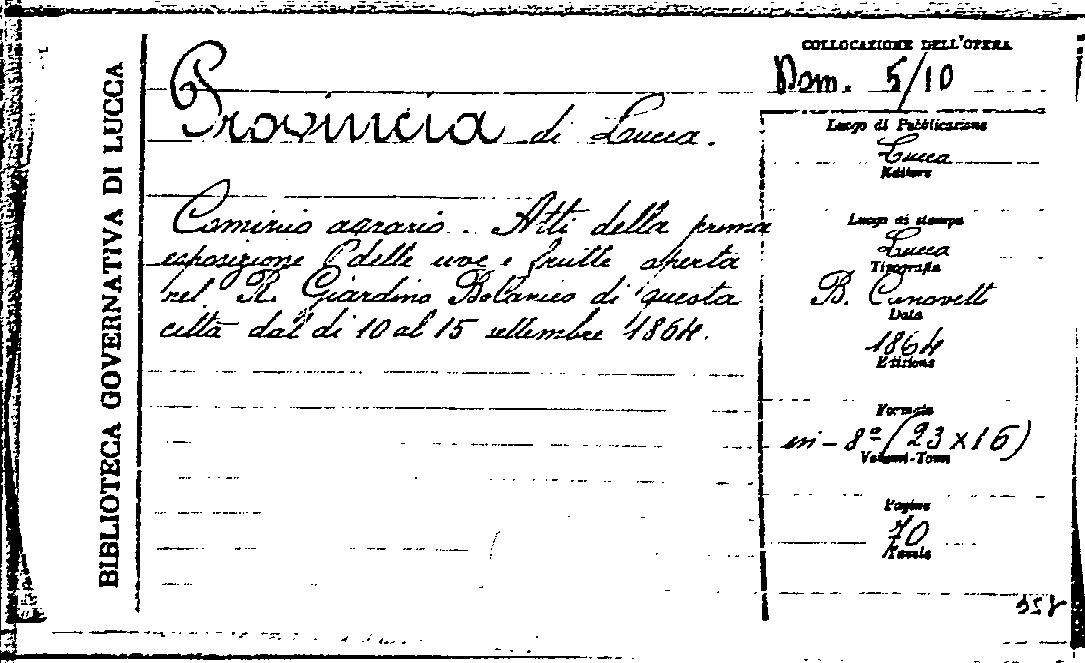 BIBLIOTECA GOVERNATIVA DI LUCCA
Provincia di Lucca.
Comizio agrario. Atti della prima
esposizione delle uve e frutte aperta
nel R. Giardino Botanico di questa
città dal di 10 al 15 settembre 1864.
COLLOCAZIONE DELL'OPERA
Dom. 5/10
Luogo di Pubblicazione
Lucca
Editore
Luogo di stampa
Lucca
Tipografia
B. Canovetti
Data
1864
Edizione
Formato
in-8º (23x16)
Volumi-Tomi
Pagine
70
Tavole